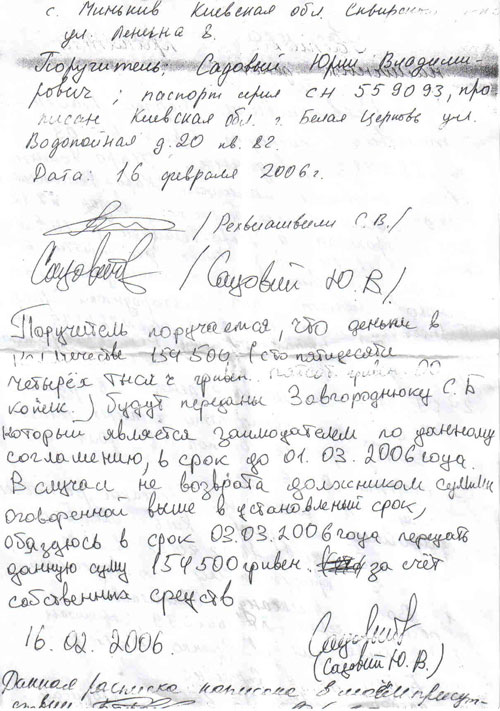 с. Миньків Киевская обл. Сквирск
ул. Ленина 8.
Поручитель: Садовый Юрий Владими-
рович; паспорт серия СН 559093, про
писан Киевская обл. г. Белая Церковь ул.
Водопойная д. 20 кв. 82.
Дата: 16 февраля 2006 г.
/ Рехвиашвили С. В. /
/ Садовий Ю. В. /
Поручитель поручается, что деньги в
количестве 154 500 (сто пятидесяти
четырёх тысяч гривен пятсот гривен 00
копеек.) будут переданы Завгороднюку С. Б
который является заимодателем по данному
соглашению, в срок до 01. 03. 2006 года.
В случаи не возврата должником суммы
оговоренной выше в установленый срок,
обяздюсь в срок 03.03.2006 года передать
данную суму 154500 гривен. за счёт
собственных средств
16. 02. 2006.
(Садовий Ю. В.)
Данная расписка написана в моём присут-
ствии